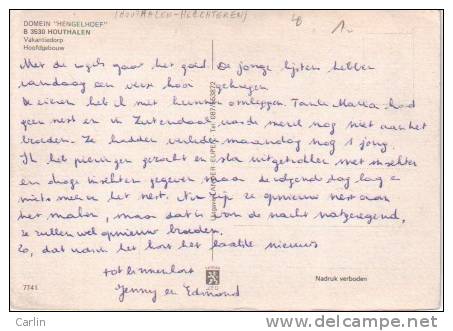 DOMEIN "HENGELHOEF"
B 3530 HOUTHALEN
Vakantiedorp
Hoofdgebouw
(HOUTHALEN-HELCHTEREN)
1.-
Met de vogels gaat het goed. De jonge lijsters hebben
vandaag een voor
De eieren heb ik niet kunnen omleggen Tante Maria had
geen nest en in Zutendaal was de merel nog niet aan het
broeden. Ze hadden verleden maandag nog 1 jong.
Ik heb pieringen gezocht en sla uitgetrokken met insekten
en droge insekten gegeven maar de volgend dag lag er
niets meer in het nest. Nu zijn ze opnieuw nest aan
het maken, maar dat is van de nacht natgeregend,
ze zullen wel opnieuw broeden.
Zo, dat was in het kort het laatste nieuws
tot binnenkort
Jenny en Edmond
7741
Nadruk verboden
© Carlin
delcampe.net